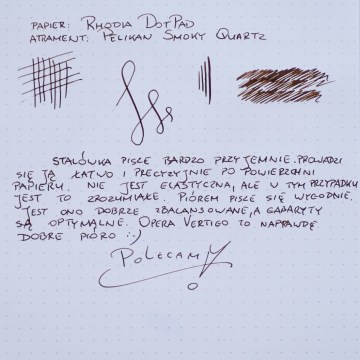 PAPIER: RHODIA DOTPAD
ATRAMENT: PELIKAN SMOKY QUARTZ
STALÓWKA PISZE BARDZO PRZYJEMNIE. PROWADZI
SIĘ JĄ ŁATWO I PRECYZYJNIE PO POWIERZCHNI
PAPIERU. NIE JEST ELASTYCZNA, ALE W TYM PRZYPADKU
JEST TO ZROZUMIAŁE. PIÓREM PISZE SIĘ WYGODNIE.
JEST ONO DOBRZE ZBALANSOWANE, A GABARYTY
SĄ OPTYMALNE. OPERA VERTIGO TO NAPRAWDĘ
DOBRE PIÓRO :-)
POLECAMY!